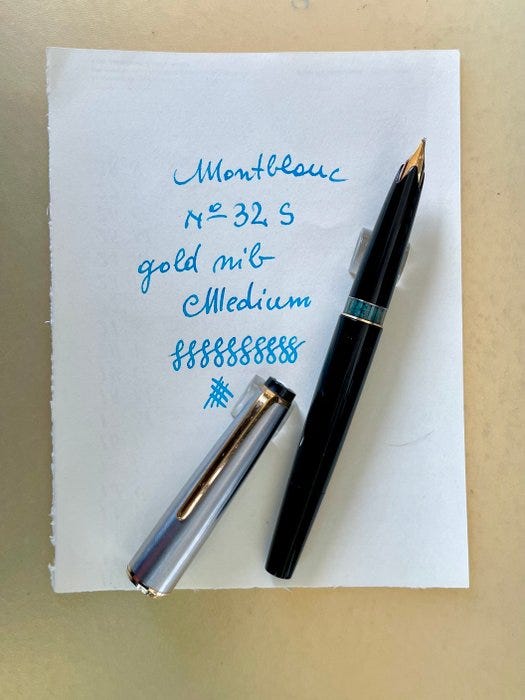 Montblanc
No 32 S
gold nib
Medium